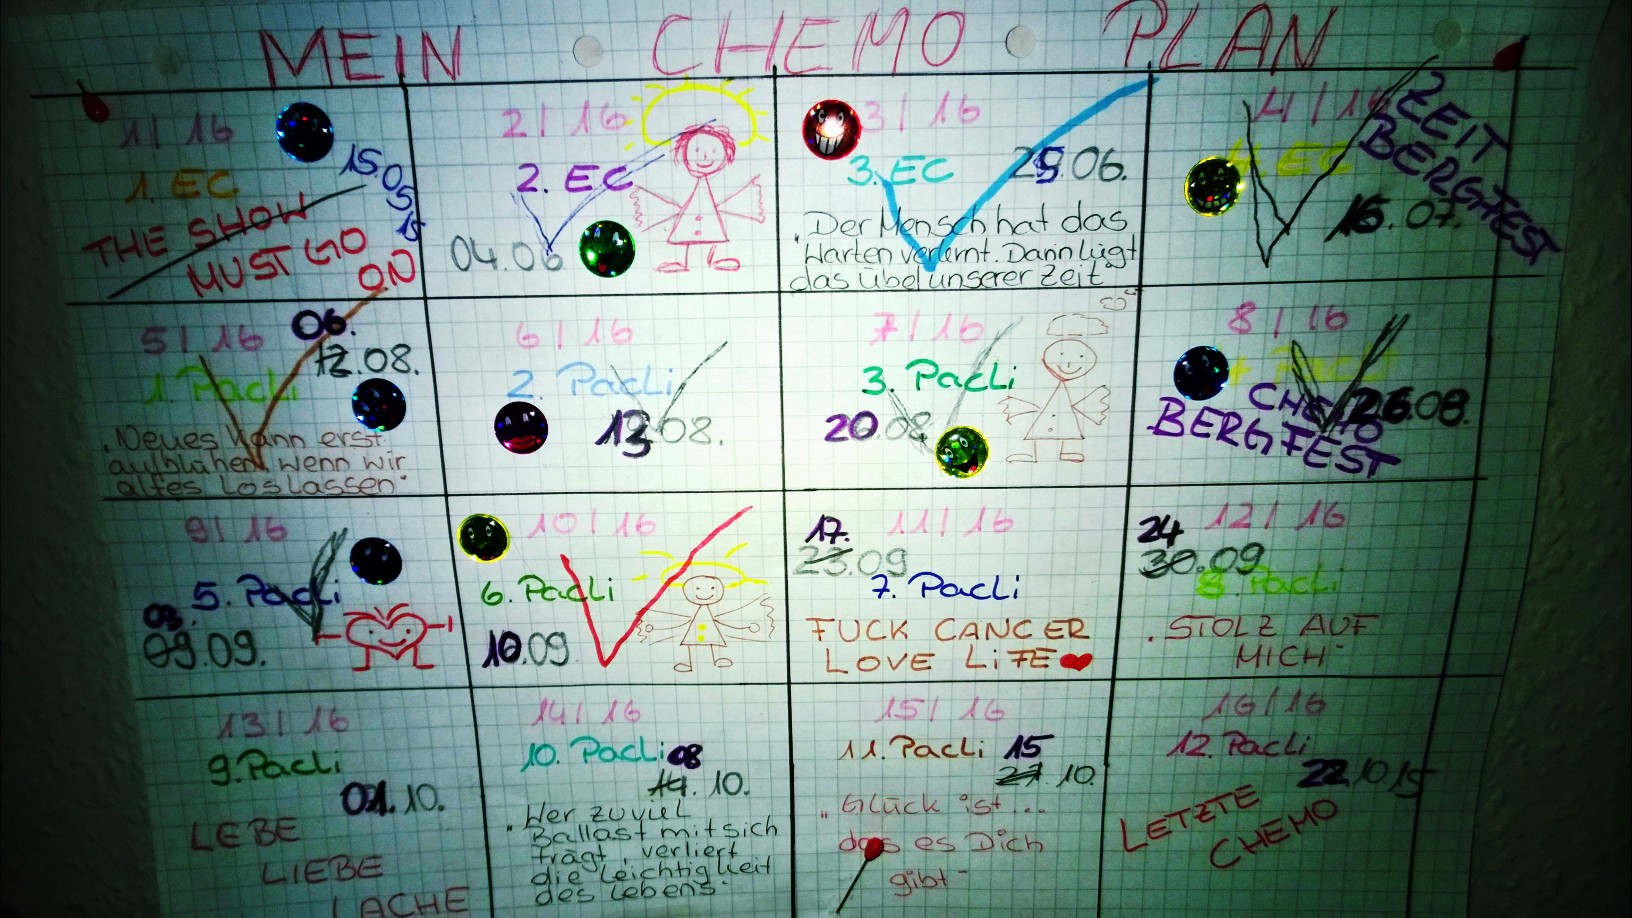 MEIN CHEMO PLAN
1/16
1. EC
15.05.15
THE SHOW
MUST GO
ON
2/16
2. EC
04.06
3/16
3. EC
25.06.
„Der Mensch hat das
Warten verlernt. Darin lügt
das übel unserer Zeit"
4/16
4. EC
16.07.
ZEIT
BERGFEST
5/16
06.
12.08.
1. Pacli
„Neues kann erst
aufblühen, wenn wir
altes loslassen"
6/16
2. Pacli
13.08.
7/16
3. Pacli
20.08.
8/16
4. Pacli
26.08.
CHEMO
BERGFEST
9/16
5. Pacli
03.
09.09.
10/16
6. Pacli
10.09
11/16
17.
23.09
7. Pacli
FUCK CANCER
LOVE LiFE
12/16
24
30.09
8. Pacli
„STOLZ AUF
MICH"
13/16
9. Pacli
01.10.
LEBE
LIEBE
LACHE
14/16
10. Pacli
08
14.10.
„Wer zuviel
Ballast mit sich
trägt, verliert
die Leichtigkeit
des Lebens"
15/16
11. Pacli
15
21.10.
„Glück ist...
das es Dich
gibt"
16/16
12. Pacli
22.10.15
LETZTE
CHEMO